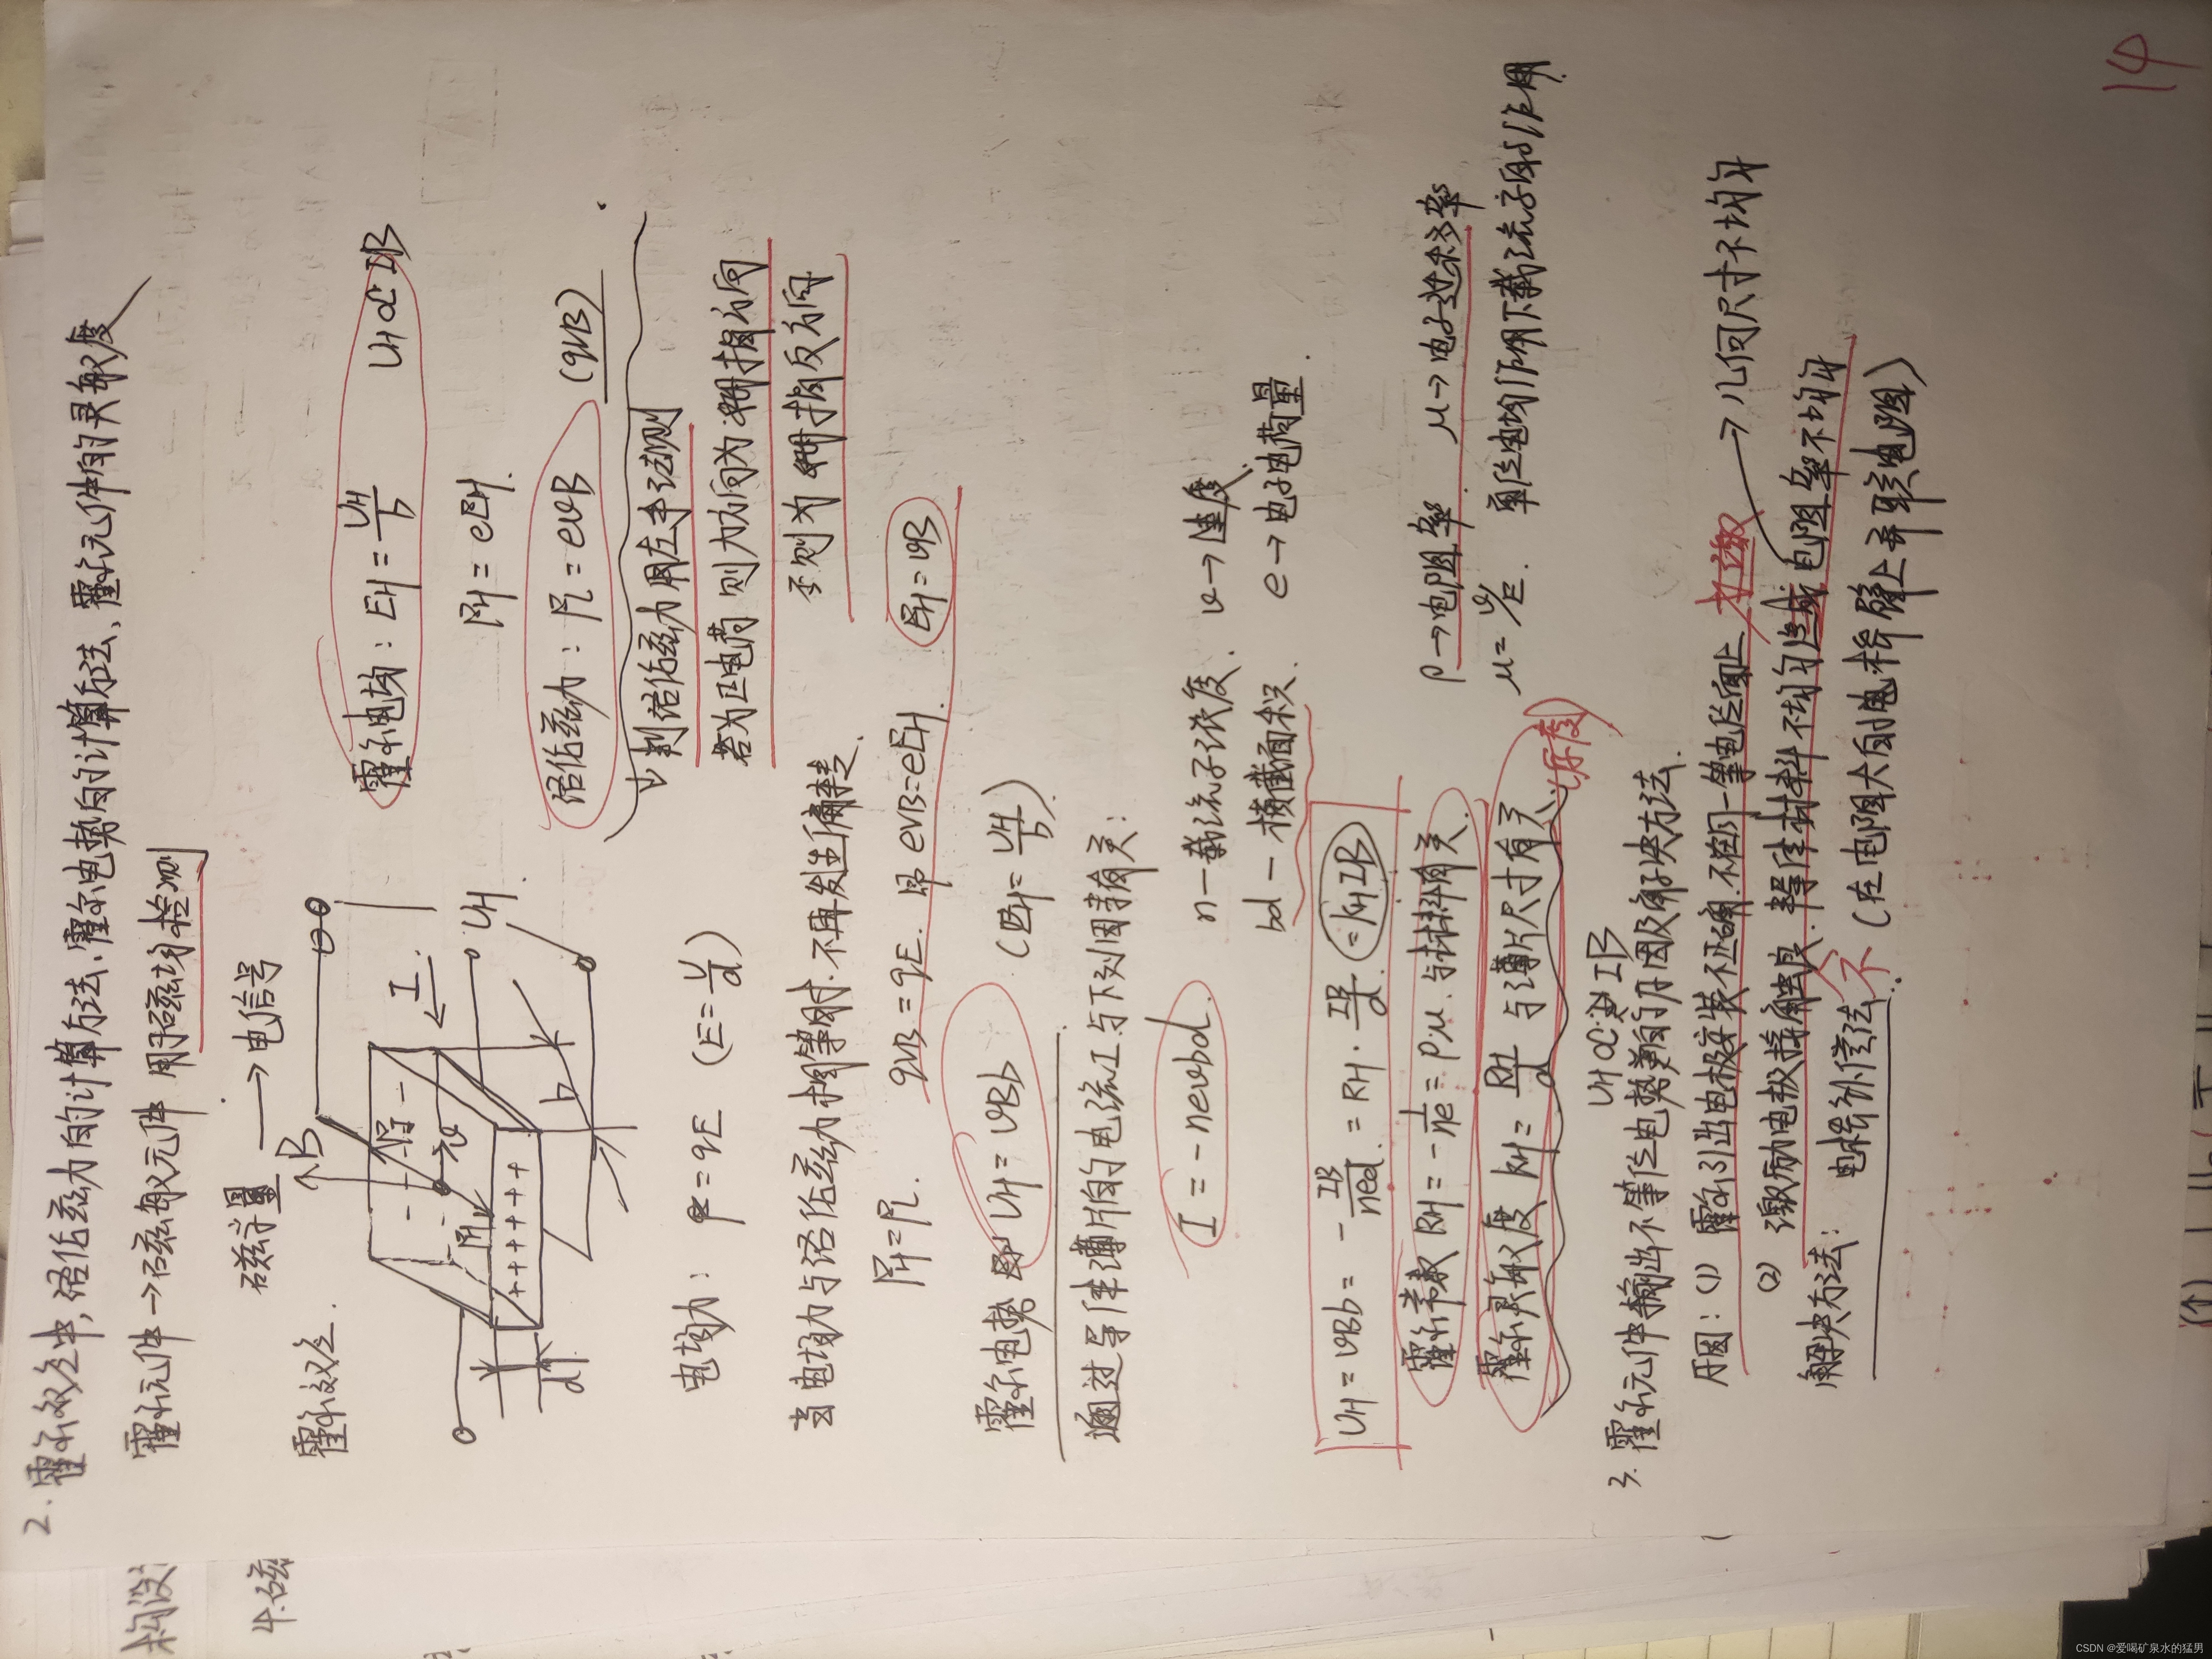 2. 霍尔效应中,洛伦兹力的计算方法、霍尔电势的计算方法、霍尔元件的灵敏度
霍尔元件→磁敏元件 用于磁场检测
磁学量 → 电信号
霍尔效应.
B
I
FE
v
FL
UH
b
d
l
霍尔电场: EH = UH/b UH∝IB
FH = eEH.
洛伦兹力: FL = evB (qvB)
判洛伦兹力用左手法则
若为正电荷 则力方向为拇指方向
否则为拇指反方向
电场力: F = qE (E = U/d)
当电场力与洛伦兹力相等时.不再发生偏转.
FH = FL. qvB = qE. 即 evB=eEH. EH=vB
霍尔电势 即 UH = vBb (EH = UH/b)
通过导体薄片的电流I与下列因素有关:
I = -nevbd. n—载流子浓度. v→速度.
bd—横截面积. e→电子电荷量.
UH = vBb = - IB/ned. = RH · IB/d. = KHIB
霍尔常数 RH = - 1/ne = ρμ. 与材料有关. ρ→电阻率. μ→电子迁移率
霍尔灵敏度 KH = RH/d 与薄片尺寸有关. (厚度) μ= v/E. 单位电场作用下载流子的作用
3. 霍尔元件输出不等位电势差的原因及解决方法.
UH∝IB
原因: (1) 霍尔引出电极安装不正确.不在同一等电位面上
(2) 激励电极接触不良.半导体材料不均匀造成电阻率不均匀
→几何尺寸不均匀
解决方法: 电桥补偿法. (在电阻大的电桥臂上并联电阻)
14
构设
4.磁
CSDN @爱喝矿泉水的猛男